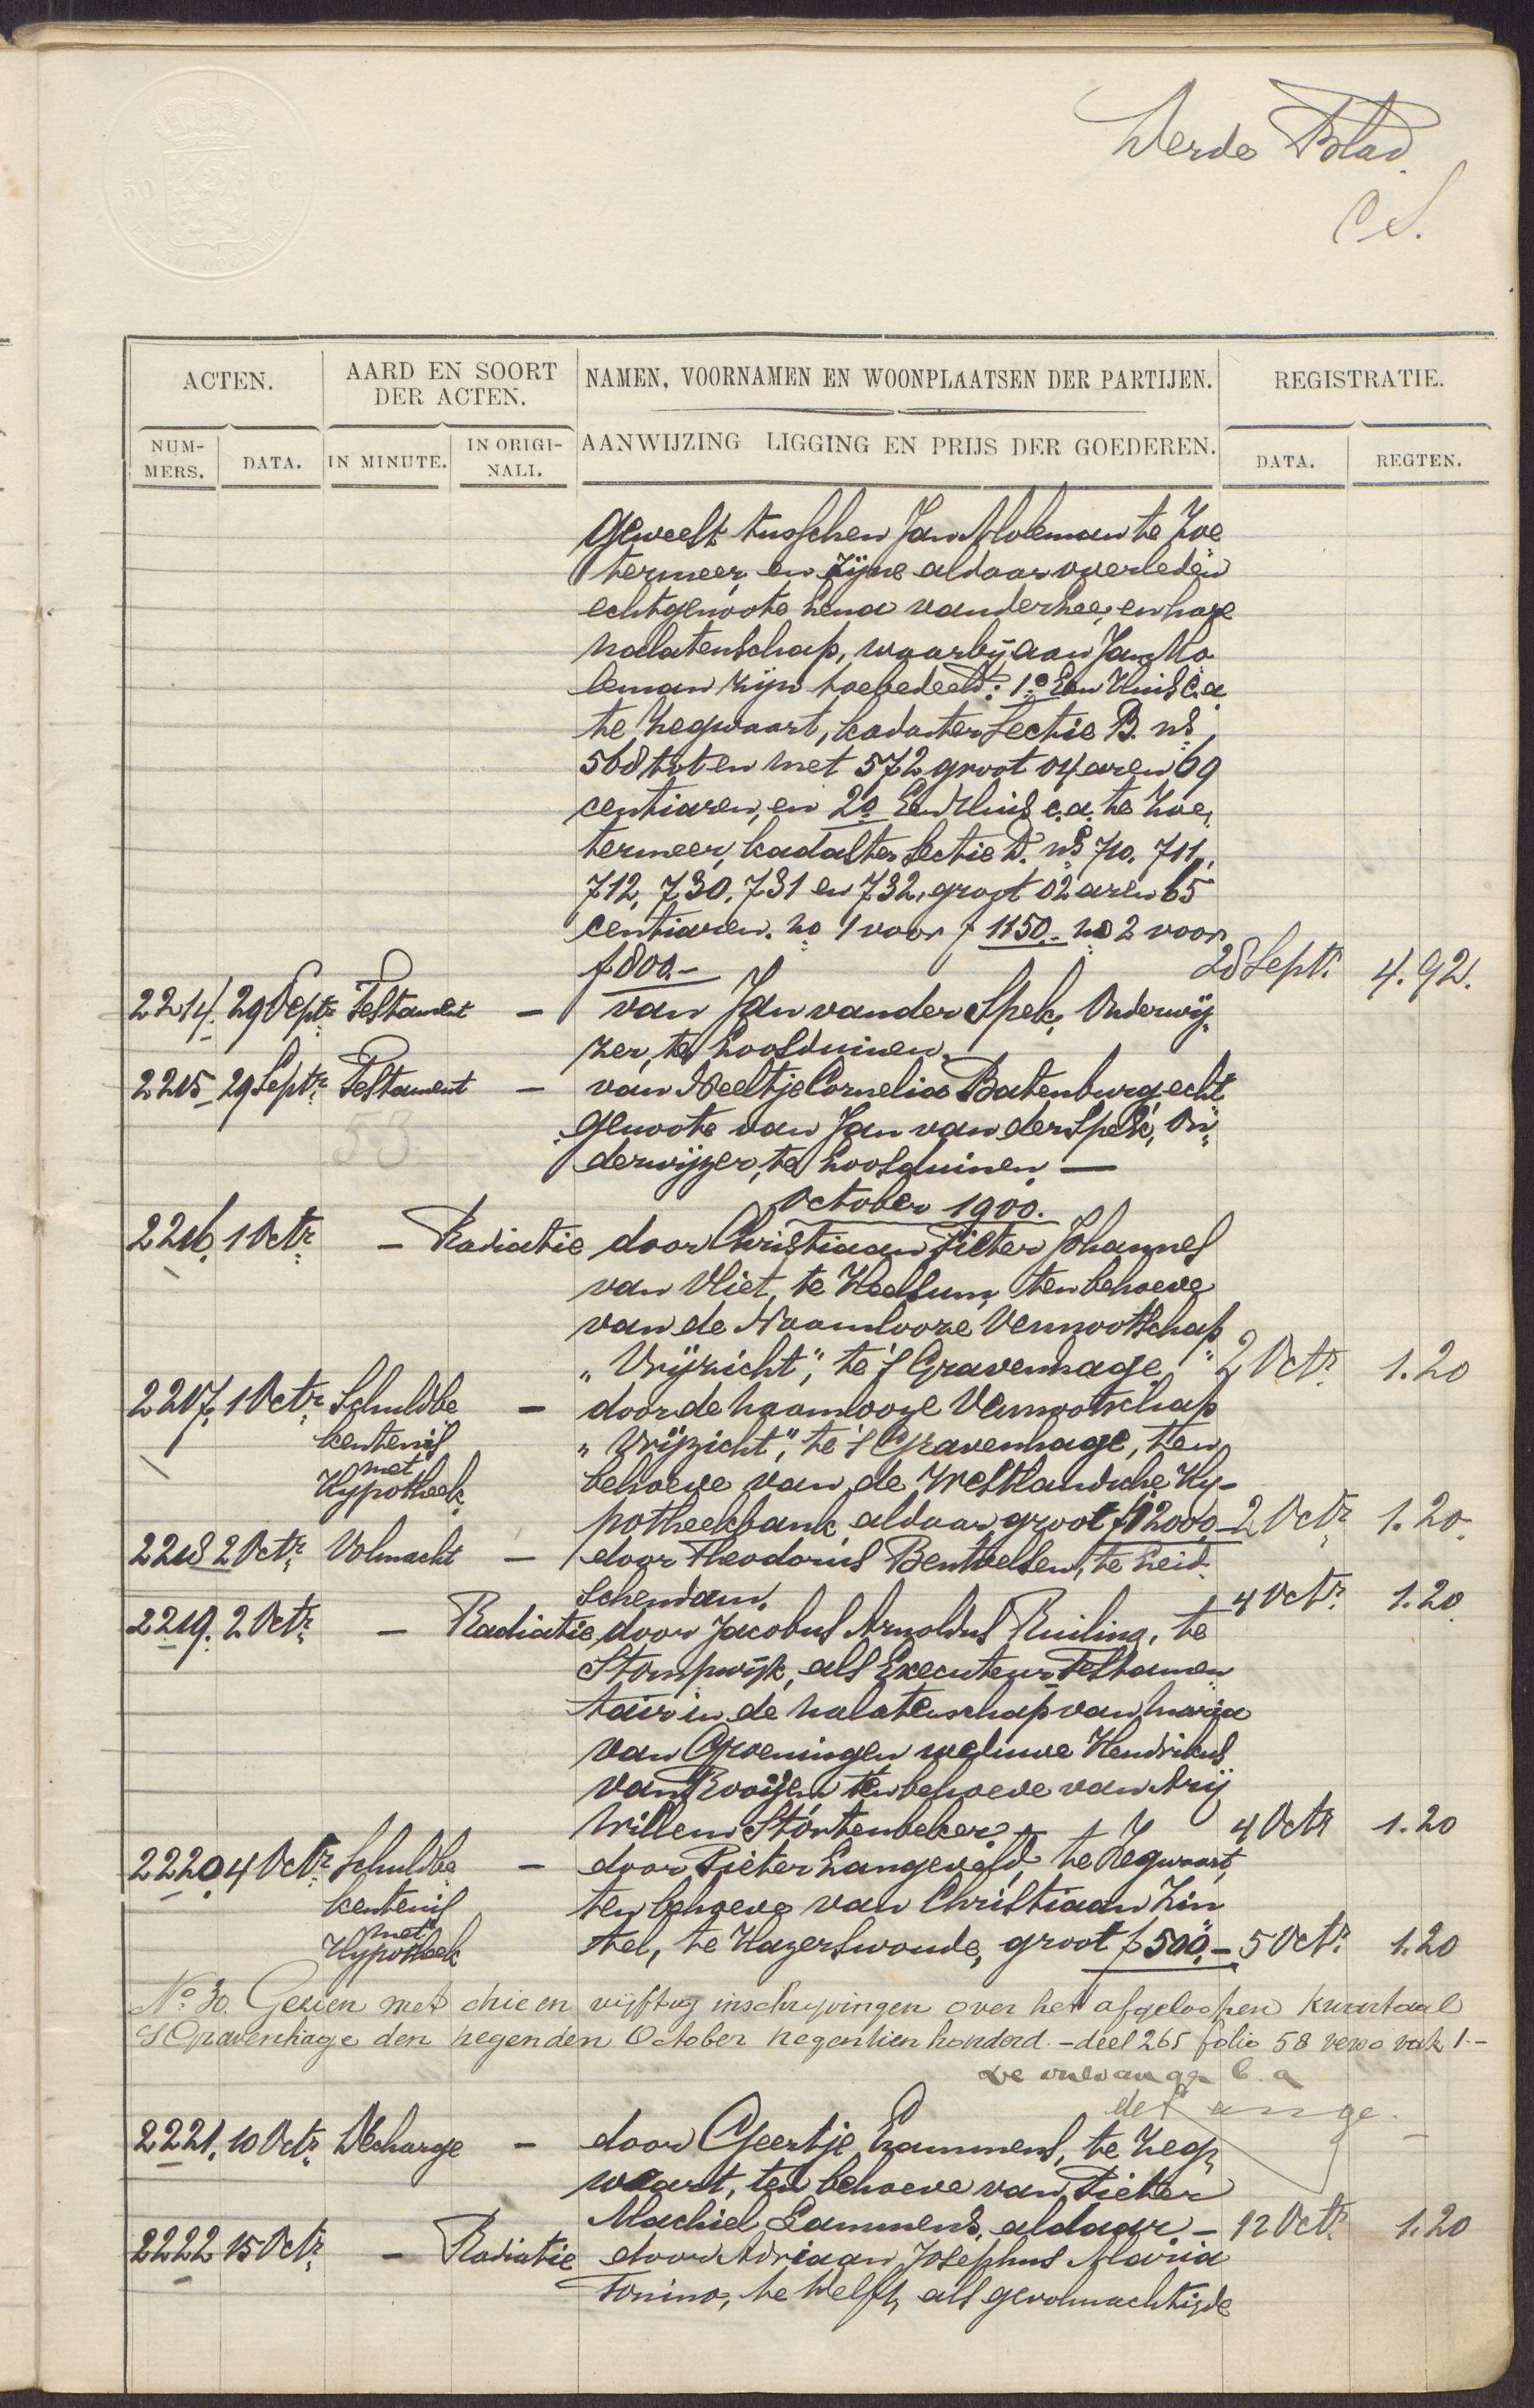 Derde Blad.
C S.
ACTEN.
AARD EN SOORT DER ACTEN.
NAMEN, VOORNAMEN EN WOONPLAATSEN DER PARTIJEN.
REGISTRATIE.
NUM-MERS.
DATA.
IN MINUTE.
IN ORIGI-NALI.
AANWIJZING LIGGING EN PRIJS DER GOEDEREN.
DATA.
REGTEN.
geweest tusschen Jan Moleman te Zoe
termeer en zijne aldaar overleden
echtgenoote Lena van der Lee, en hare
nalatenschap, waarbij aan Jan Mo
leman zijn toebedeeld: 1o Een Huis c.a
te Zegwaart, kadaster Sectie B. ns
568 tot en met 572 groot 04 aren 69
centiaren, en 2o Een Huis c.a. te Zoe,
termeer, kadaster Sectie D. ns 710. 711,
712, 730, 731 en 732, groot 02 aren 65
centiaren. no 1 voor f 1150.- no 2 voor
f 800.- 28 Septr. 4.92.
2214. 29 Septr Testament - van Jan van der Spek, Onderwij
zer, te Loosduinen.
2215 29 Septr Testament - van Neeltje Cornelia Batenburg, echt
genoote van Jan van der Spek, On
derwijzer, te Loosduinen. —
53
October 1900.
2216. 1 Octr - Radiatie door Christiaan Pieter Johannes
van Vliet, te Heelsum, ten behoeve
van de Naamlooze Vennootschap
"Vrijzicht", te 's Gravenhage. 2 Octr. 1.20
2217. 1 Octr Schuldbe - door de naamlooze Vennootschap
kentenis "Vrijzicht", te 's Gravenhage, ten
met behoeve van de Westlandsche Hy-
Hypotheek. potheekbank aldaar groot f 12000.- 2 Octr 1.20.
2218 2 Octr. Volmacht - door Theodorus Benthelsen, te Leid
schendam. 4 Octr. 1.20
2219. 2 Octr. - Radiatie door Jacobus Arnoldus Ruiling, te
Stompwijk, als Executeur-Testamen
tair in de nalatenschap van Maria
van Groeningen weduwe Hendrikus
van Rooijen ten behoeve van Arij
Willem Stortenbeker. 4 Octr 1.20
2220 4 Octr. Schuldbe - door Pieter Langeveld, te Zegwaart,
kentenis ten behoeve van Christiaan Zin
met
Hypotheek tel, te Hazerswoude, groot f 500.- 5 Octr. 1.20
No 30. Gezien met drie en vijftig inschrijvingen over het afgeloopen kwartaal
's Gravenhage den negenden October negentien honderd. - deel 265 folio 58 verso vak 1.-
De ontvanger b. a
2221. 10 Octr Décharge - door Geertje Lammens, te Zeg
waart, ten behoeve van Pieter
Machiel Lammens, aldaar - 12 Octr. 1.20
2222 15 Octr. - Radiatie door Adriaan Josephus Maria
Tonino, te Delft, als gevolmachtigde